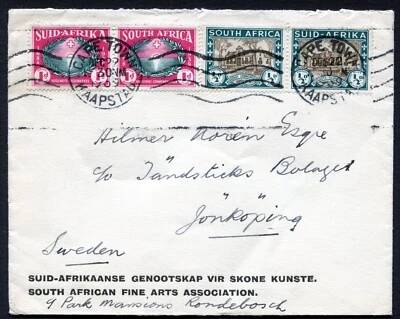 SUID-AFRIKA SOUTH AFRICA SOUTH AFRICA SUID-AFRIKA
1D 1D ½D ½D
CAPE TOWN
KAAPSTAD
CAPE TOWN
KAAPSTAD
Hilmer Norén Esqre
c/o Tändsticks Bolaget
Jönköping
Sweden
SUID-AFRIKAANSE GENOOTSKAP VIR SKONE KUNSTE.
SOUTH AFRICAN FINE ARTS ASSOCIATION.
9 Park Mansions Rondebosch